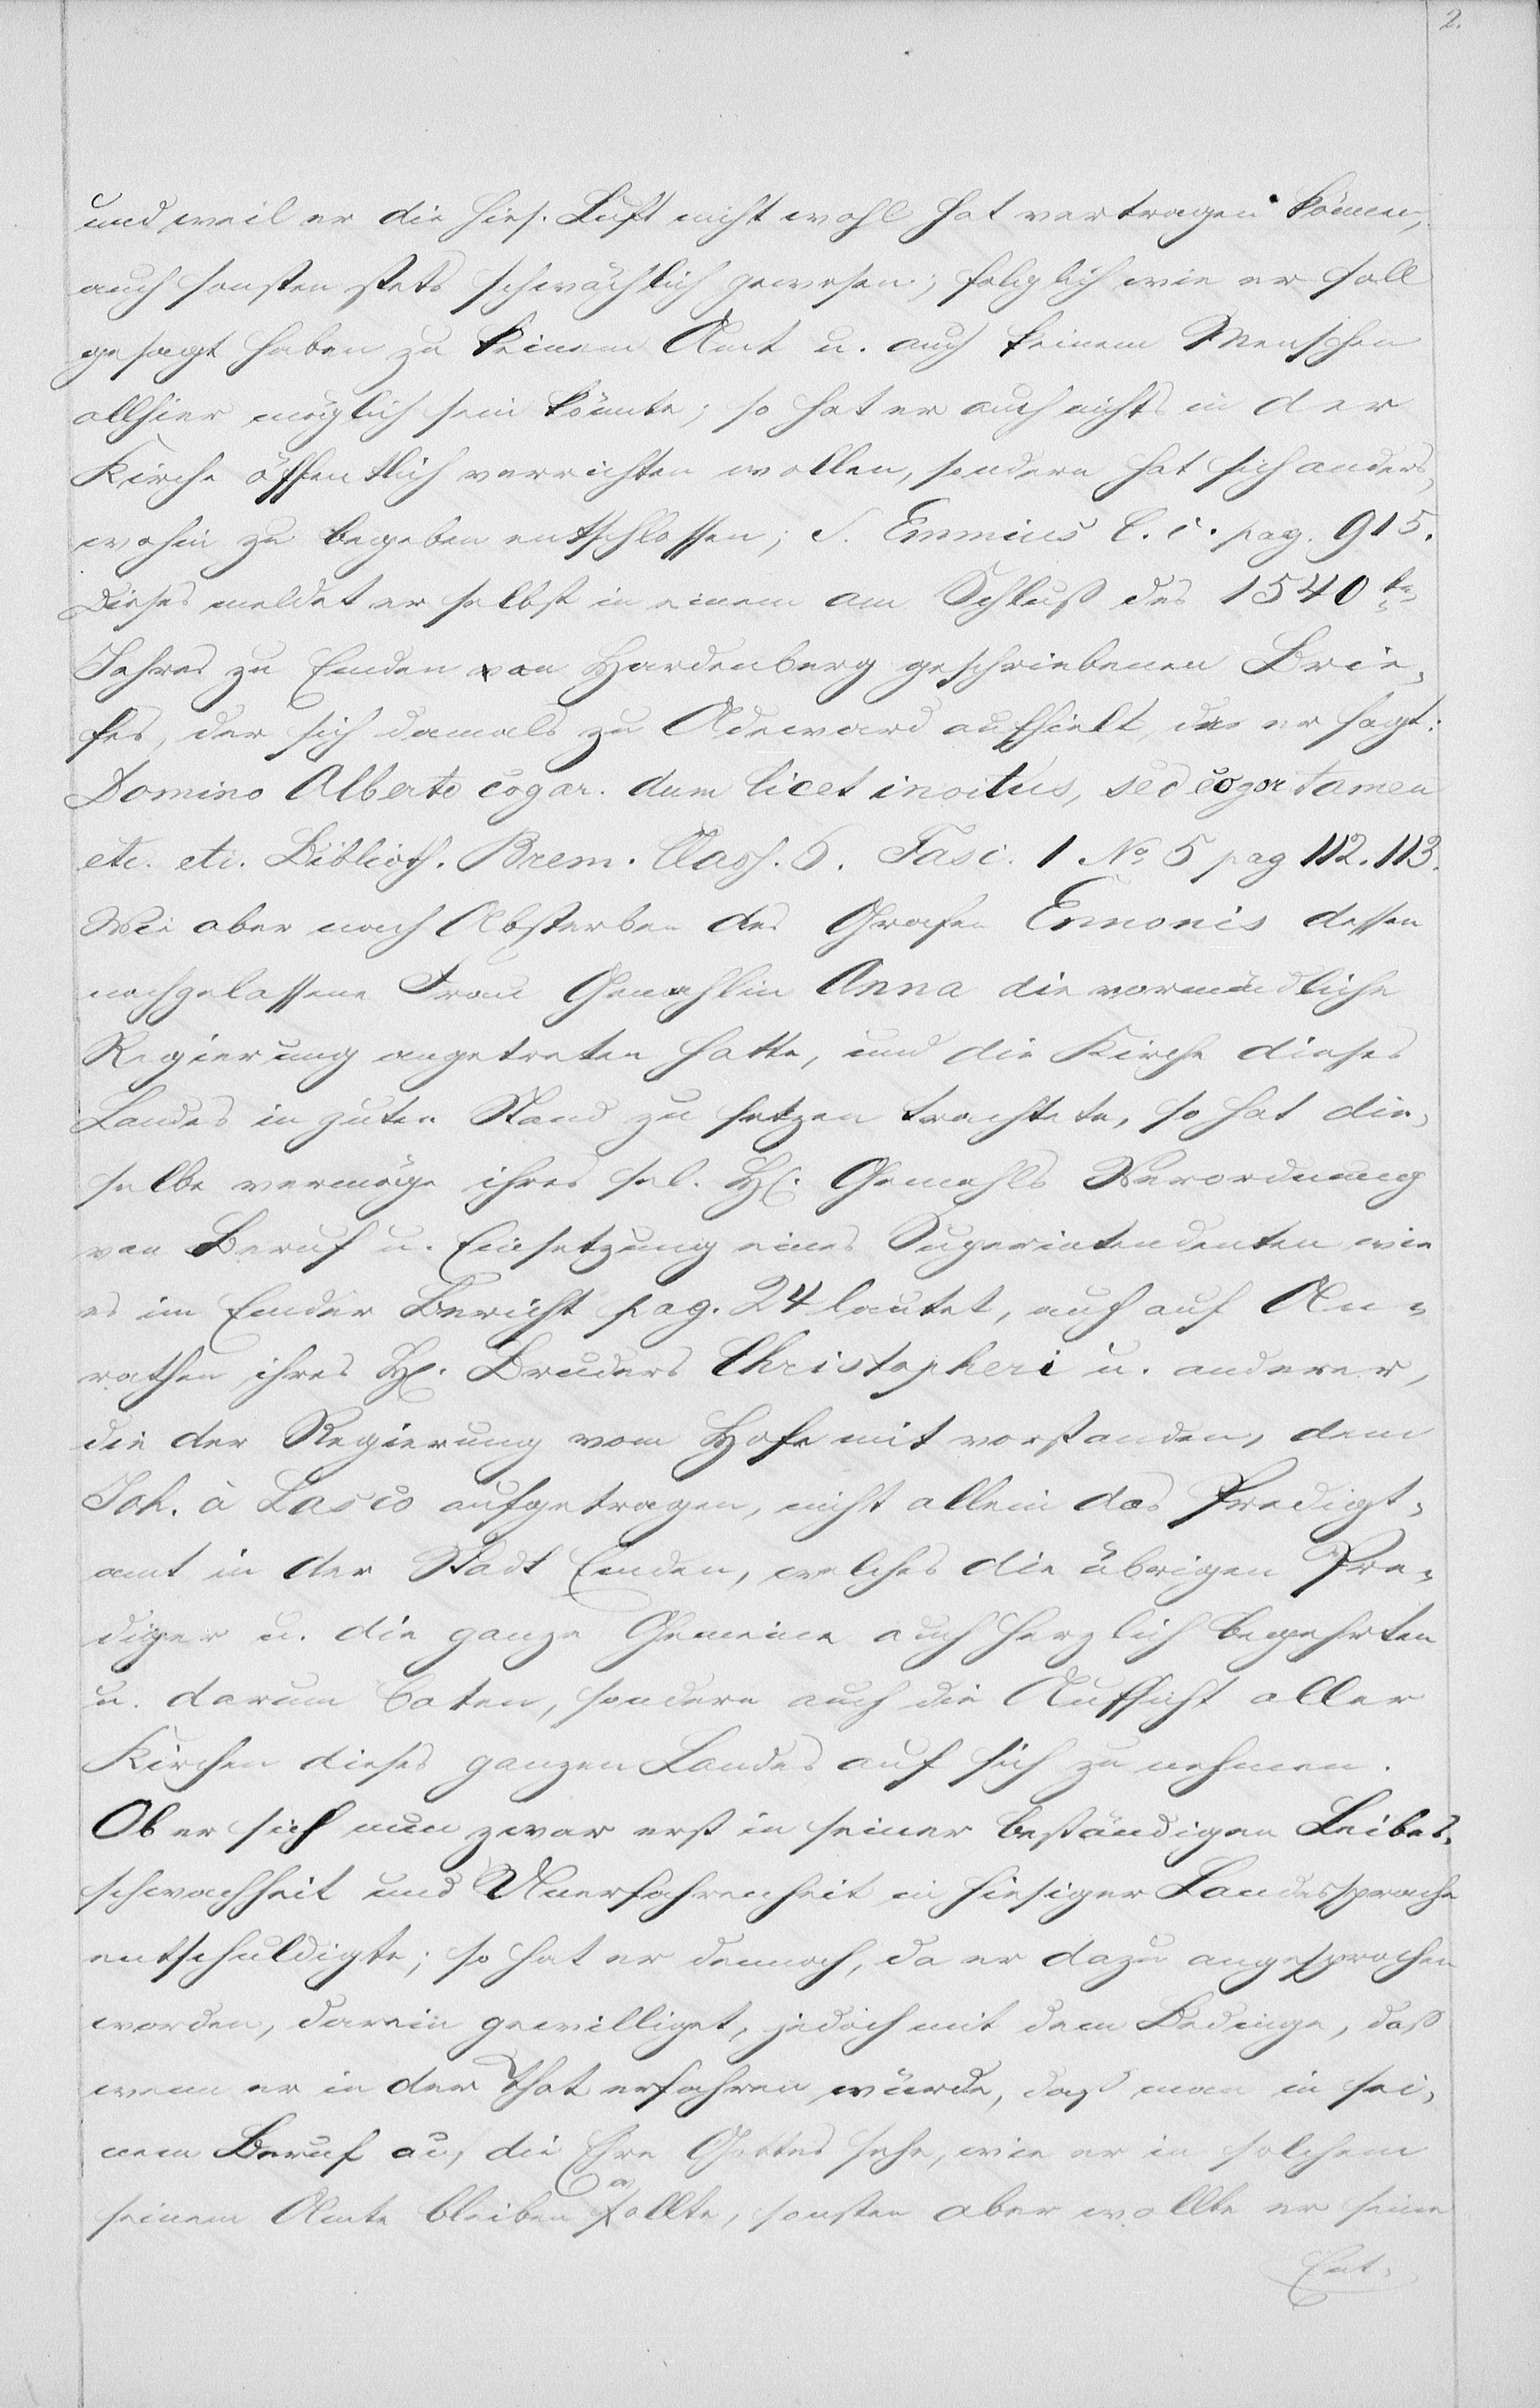 2.
und weil er die hies. Luft nicht wohl hat vertragen können,
auch sonsten stets schwächlich gewesen; folglich wie er soll
gesagt haben zu keinem Amt u. auch keinem Menschen
allhier möglich sein könnte; so hat er auch nichts in der
Kirche öffentlich verrichten wollen, sondern hat sich anders,
wohin zu begeben entschlossen; S. Emmius l. c. pag. 915.
Dieses meldet er selbst in einem am Schluß des 1540 ten
Jahres zu Emden an Hardenberg geschriebenen Brie,
fes, der sich damals zu Adeward aufhielt, da er sagt:
Domino Alberto cogor. dum licet invitus, sed cogor tamen
etc. etc. Biblioth. Brem. Class. 6. Fasc. 1 No 5 pag 112. 113.
Wie aber nach Absterben des Grafen Ennonis dessen
nachgelassene Frau Gemahlin Anna die vormündliche
Regierung angetreten hatte, und die Kirche dieses
Landes in guten Stand zu setzen trachtete, so hat die,
selbe vermöge ihres sel. H. Gemahls Verordnung
von Beruf u. Einsetzung eines Superintendenten wie
es im Emder Bericht pag. 24 lautet, auch auf An-
rathen ihres H. Bruders Christopheri u. anderer,
die der Regierung vom Hofe mit vorstanden, dem
Joh. à Lasco aufgetragen, nicht allein das Predigt-
amt in der Stadt Emden, welches die übrigen Pre-
diger u. die ganze Gemeine auch herzlich begehrten
u. darum baten, sondern auch die Aufsicht aller
Kirchen dieses ganzen Landes auf sich zu nehmen.
Ob er sich nun zwar erst in seiner beständigen Leibes-
schwachheit und Unerfahrenheit in hiesiger Landessprache
entschuldigte; so hat er dennoch, da er dazu angesprochen
worden, darein gewilliget, jedoch mit dem Bedinge, daß
wenn er in der That erfahren würde, daß man in sei,
nem Beruf auf die Ehre Gottes sehe, wie er in solchem
seinem Amte bleiben wollte, sonsten aber wollte er seine
Ent-